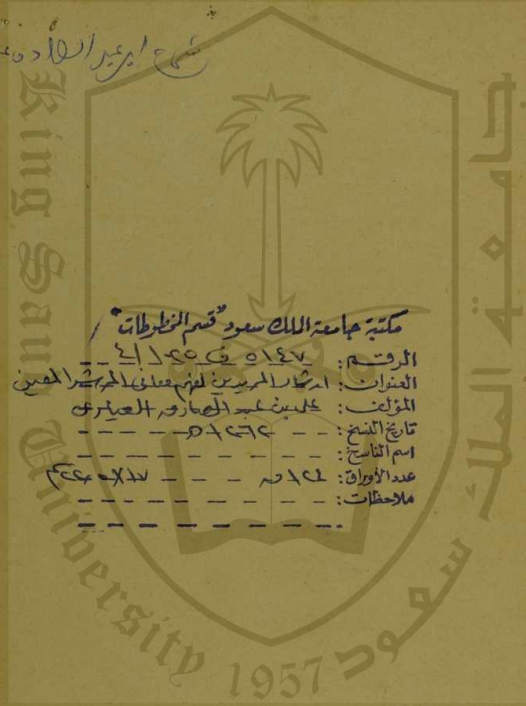 شرح ابن عبد الصادق
مكتبة جامعة الملك سعود "قسم المخطوطات"
الرقم: ٥١٤٧ ف ١٢٥١/٤
العنوان: ارشاد المريدين لفهم معاني المرشد المعين
المؤلف: علي بن عبد الصادق العيادي
تاريخ النسخ: ١٢٦٢هـ
اسم الناسخ:
عدد الأوراق: ١٢٤ ق
ملاحظات:
King Saud University
1957
جامعة الملك سعود